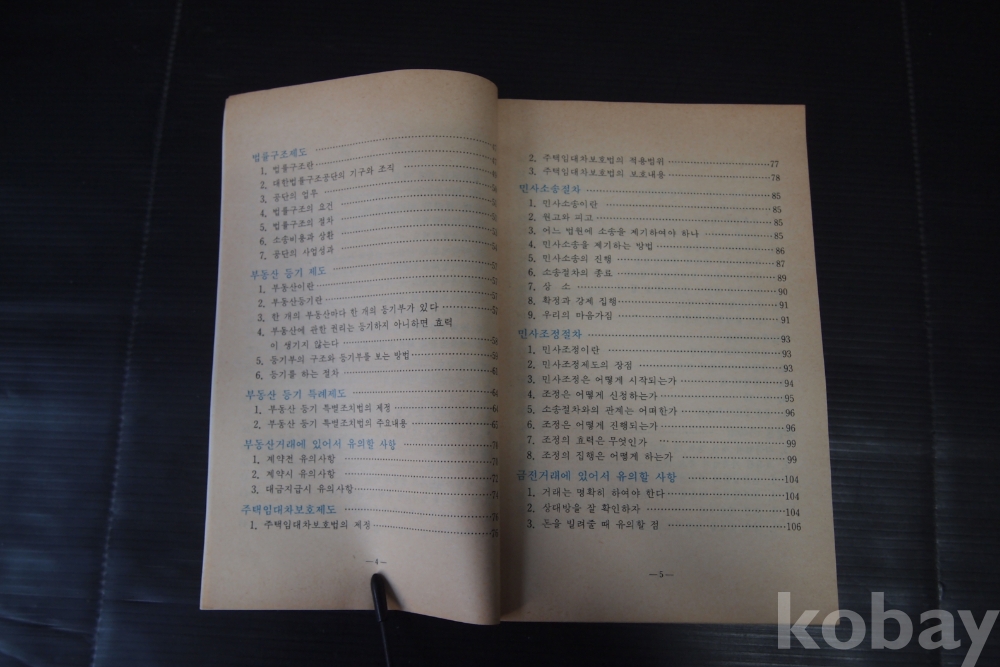 법률구조제도
1. 법률구조란
2. 대한법률구조공단의 기구와 조직
3. 공단의 업무
4. 법률구조의 요건
5. 법률구조의 절차
6. 소송비용과 상환
7. 공단의 사업성과
부동산 등기 제도
1. 부동산이란
2. 부동산등기란
3. 한 개의 부동산마다 한 개의 등기부가 있다
4. 부동산에 관한 권리는 등기하지 아니하면 효력
이 생기지 않는다
5. 등기부의 구조와 등기부를 보는 방법
6. 등기를 하는 절차
부동산 등기 특례제도
1. 부동산 등기 특별조치법의 제정
2. 부동산 등기 특별조치법의 주요내용
부동산거래에 있어서 유의할 사항
1. 계약전 유의사항
2. 계약시 유의사항
3. 대금지급시 유의사항
주택임대차보호제도
1. 주택임대차보호법의 제정
—4—
2. 주택임대차보호법의 적용범위 77
3. 주택임대차보호법의 보호내용 78
민사소송절차 85
1. 민사소송이란 85
2. 원고와 피고 85
3. 어느 법원에 소송을 제기하여야 하나 85
4. 민사소송을 제기하는 방법 86
5. 민사소송의 진행 87
6. 소송절차의 종료 89
7. 상 소 90
8. 확정과 강제 집행 91
9. 우리의 마음가짐 91
민사조정절차 93
1. 민사조정이란 93
2. 민사조정제도의 장점 93
3. 민사조정은 어떻게 시작되는가 94
4. 조정은 어떻게 신청하는가 95
5. 소송절차와의 관계는 어떠한가 96
6. 조정은 어떻게 진행되는가 96
7. 조정의 효력은 무엇인가 99
8. 조정의 집행은 어떻게 하는가 99
금전거래에 있어서 유의할 사항 104
1. 거래는 명확히 하여야 한다 104
2. 상대방을 잘 확인하자 104
3. 돈을 빌려줄 때 유의할 점 106
—5—
kobay